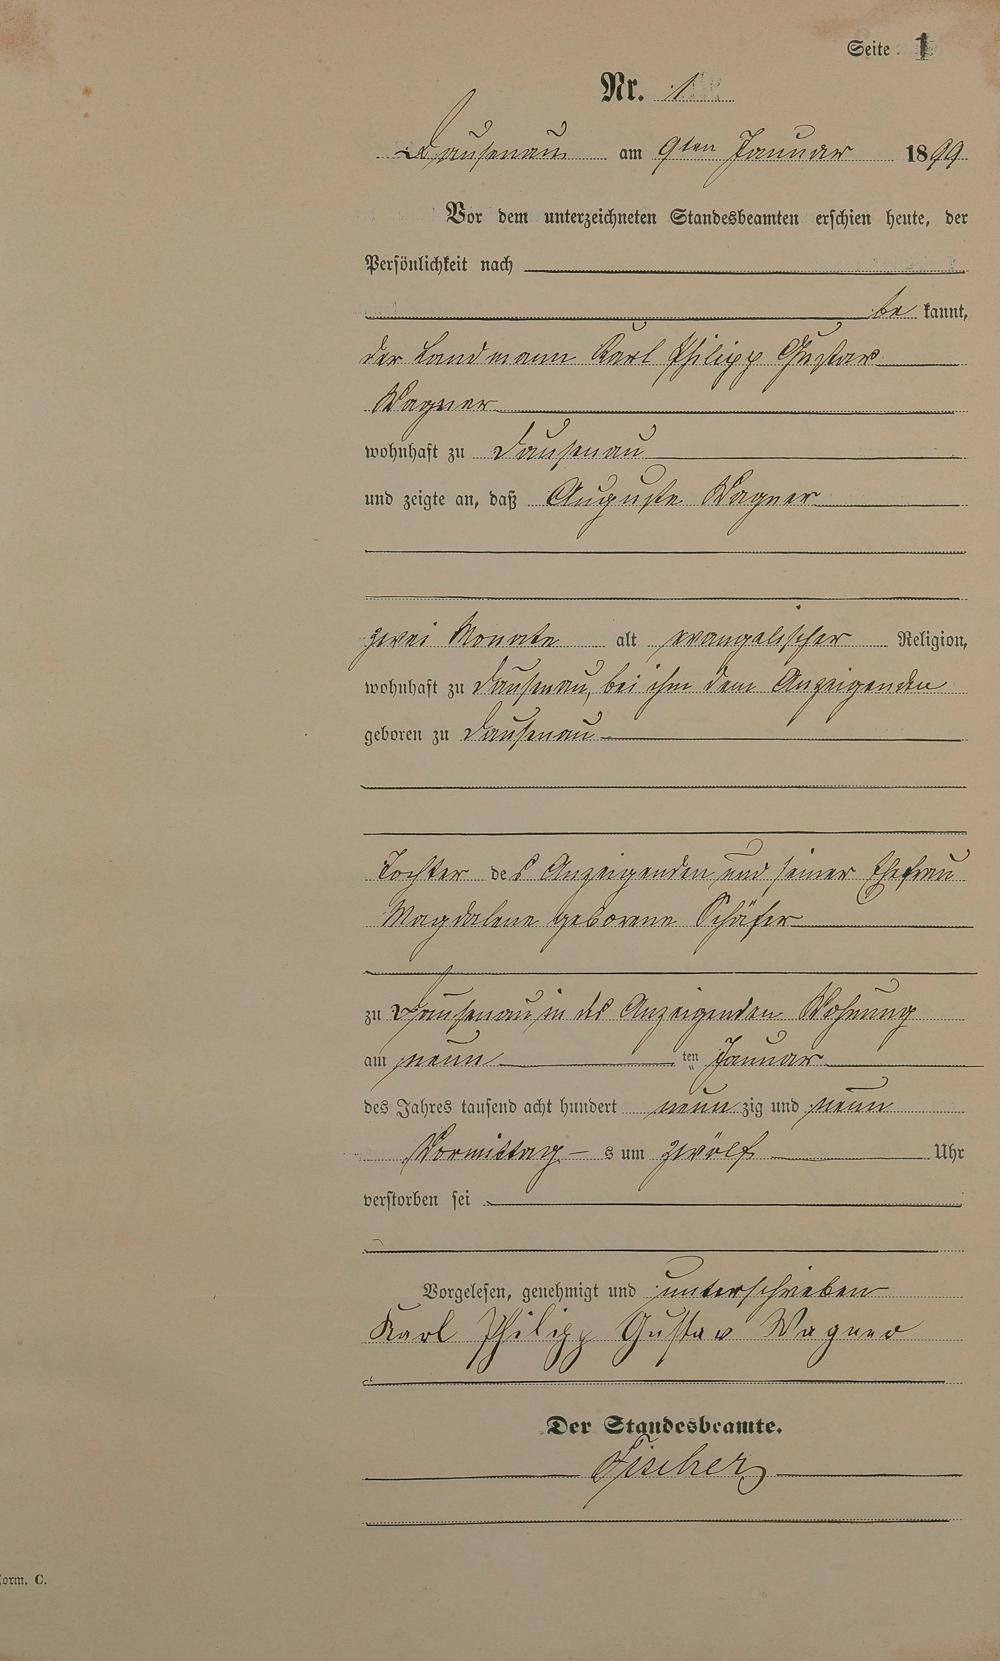 Seite 1
Nr. 1
Dausenau am 9ten Januar 1899
Vor dem unterzeichneten Standesbeamten erschien heute, der
Persönlichkeit nach
be kannt,
der Landmann Karl Philipp Gustav
Wagner
wohnhaft zu Dausenau
und zeigte an, daß Auguste Wagner
zwei Monate alt evangelischer Religion,
wohnhaft zu Dausenau, bei ihm dem Anzeigenden
geboren zu Dausenau
Tochter des Anzeigenden und seiner Ehefrau
Magdalene geborene Schäfer
zu Dausenau in des Anzeigenden Wohnung
am neun ten Januar
des Jahres tausend acht hundert neun zig und neun
Vormittag s um zwölf Uhr
verstorben sei
Vorgelesen, genehmigt und unterschrieben
Karl Philipp Gustav Wagner
Der Standesbeamte.
Fischer
Form. C.